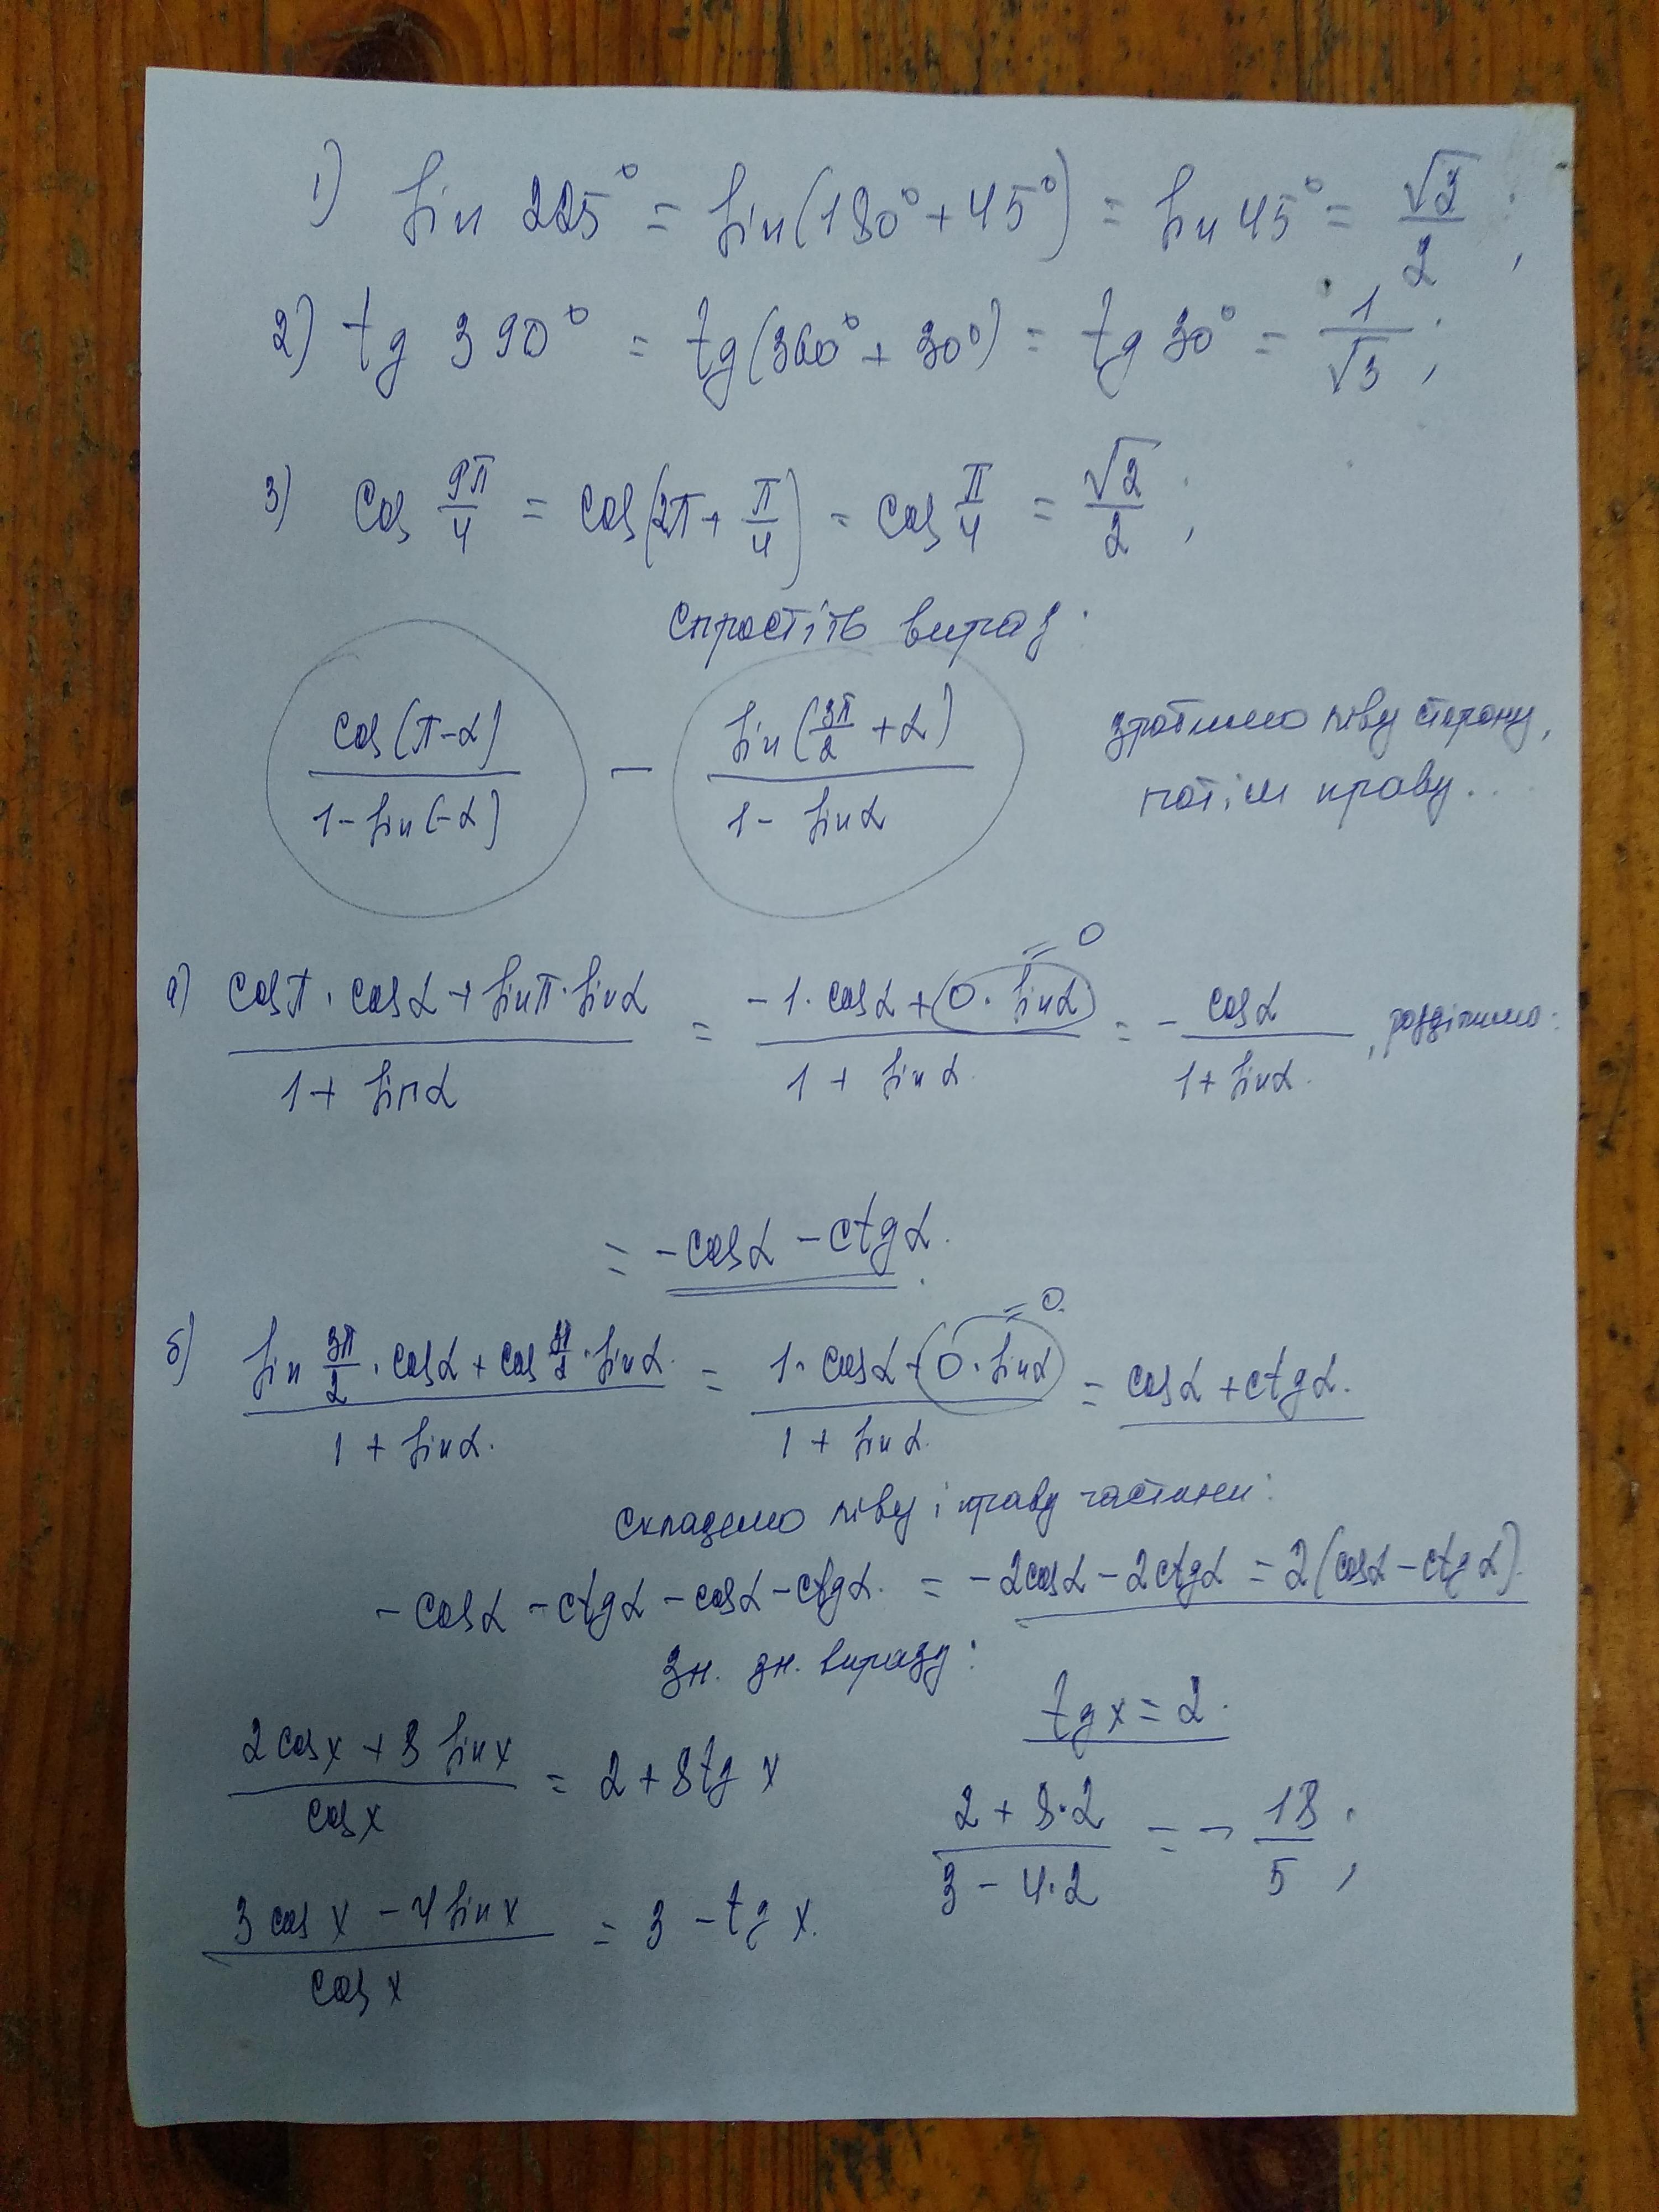 1) sin 225° = sin(180° + 45°) = sin 45° = √2/2;
2) tg 390° = tg(360° + 30°) = tg 30° = 1/√3;
3) cos 9π/4 = cos(2π + π/4) = cos π/4 = √2/2;
Спростіть вираз:
cos(π-α)/(1-sin(-α)) - sin(3π/2 + α)/(1 - sinα) зробимо ліву сторону,
потім праву...
а) (cosπ · cosα + sinπ · sinα)/(1 + sinα) = (-1 · cosα + 0 · sinα)/(1 + sinα) = - cosα/(1 + sinα), розділимо:
= 0
= -cosα - ctgα.
б) (sin 3π/2 · cosα + cos 3π/2 · sinα)/(1 + sinα) = (1 · cosα - 0 · sinα)/(1 + sinα) = cosα + ctgα.
= 0.
складемо ліву і праву частини:
- cosα - ctgα - cosα - ctgα = -2cosα - 2ctgα = 2(cosα - ctgα).
зн. зн. виразу:
tg x = 2.
(2cosx + 8 sinx)/cosx = 2 + 8tg x
(2 + 8·2)/(3 - 4·2) = - 18/5;
(3 cos x - 4 sinx)/cos x = 3 - tg x.